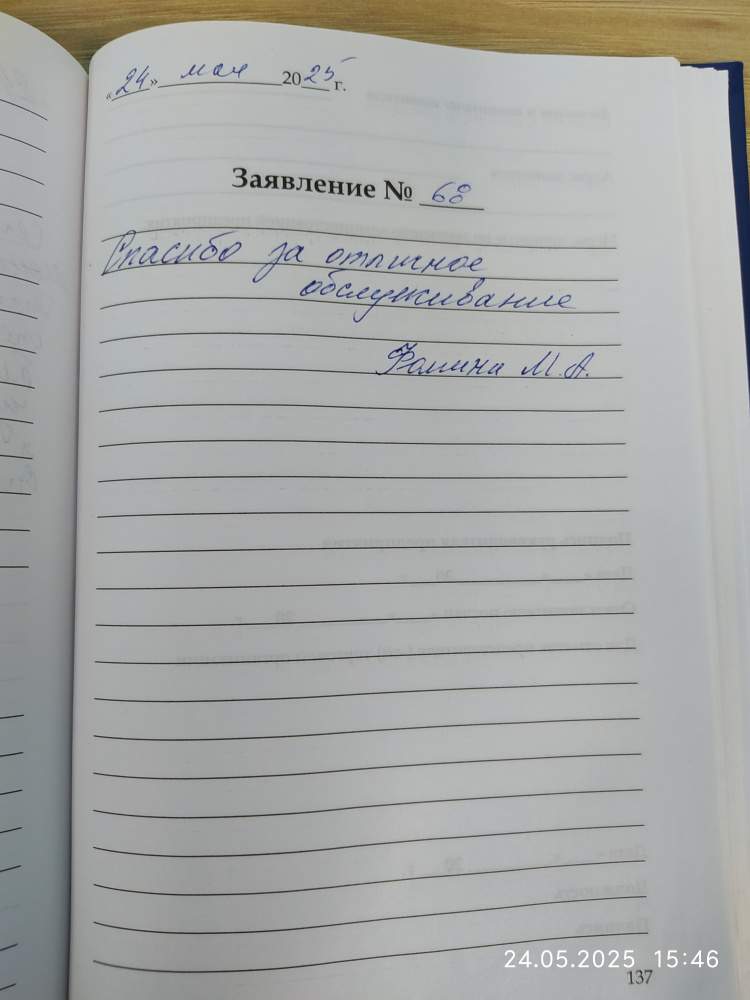 «24» мая 2025 г.
Заявление № 68
Спасибо за отличное
обслуживание
Фомина М.А.
137
24.05.2025 15:46